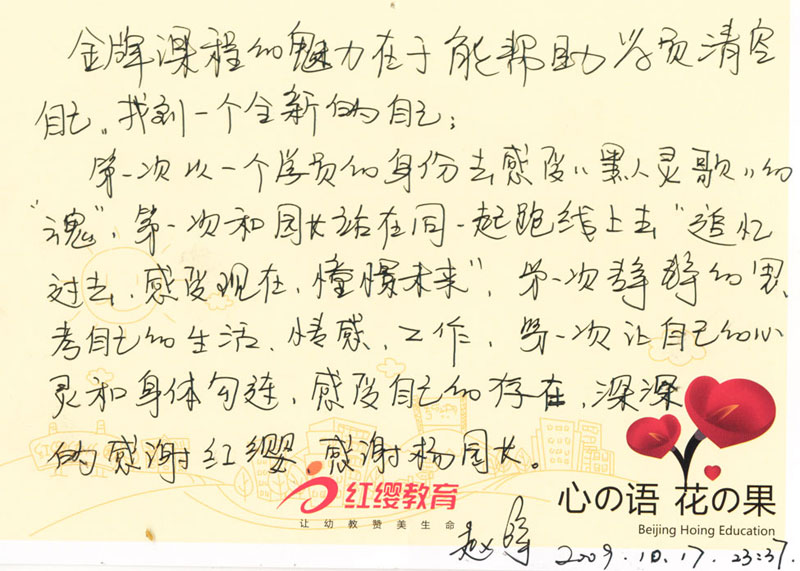 金牌课程的魅力在于能帮助学员清空
自己。找到一个全新的自己;
第一次以一个学员的身份去感受《黑人灵歌》的
“魂”,第一次和园长站在同一起跑线上去“追忆
过去、感受现在、憧憬未来”,第一次静静的思
考自己的生活、情感、工作,第一次让自己的心
灵和身体勾连,感受自己的存在,深深
的感谢红缨、感谢杨园长。
红缨教育
让幼教赞美生命
心の语 花の果
Beijing Hoing Education
2009.10.17. 23:37.